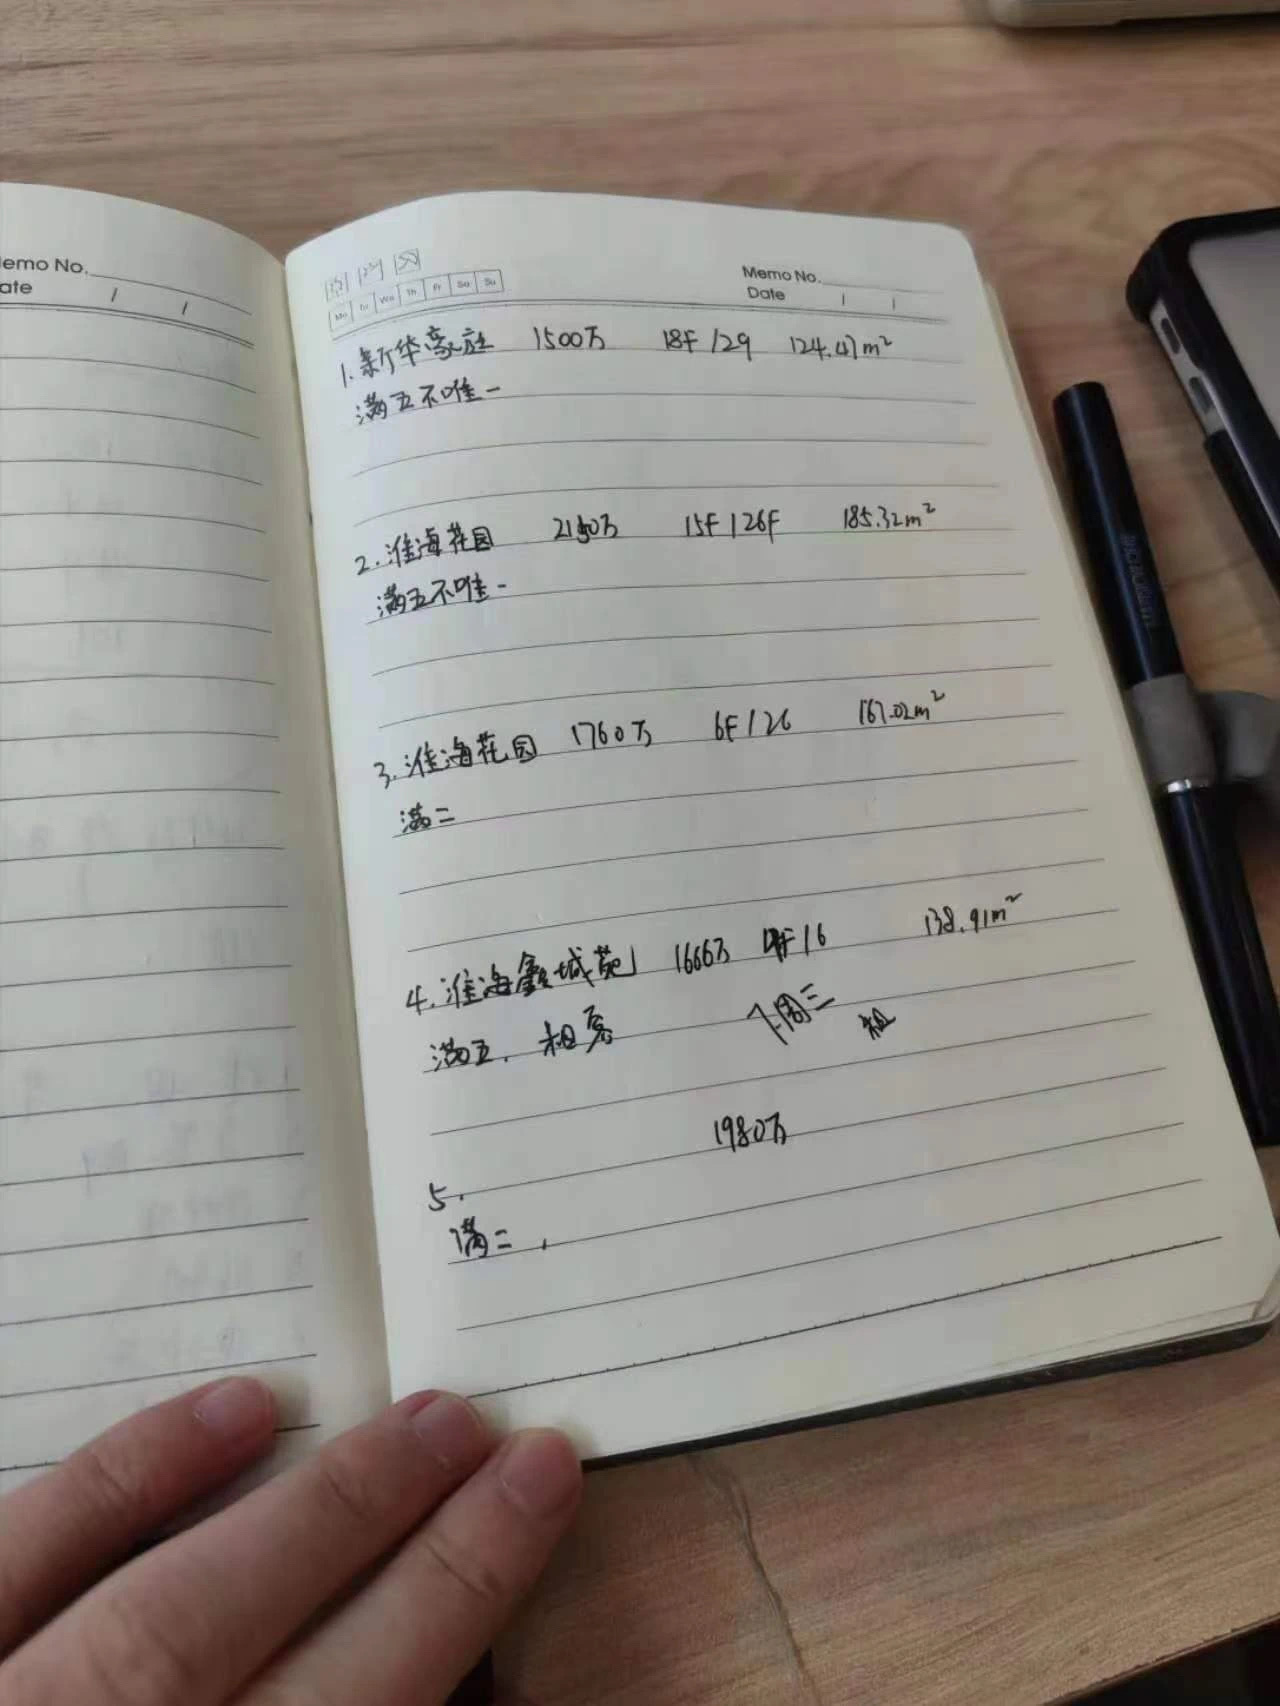 emo No.
ate / /
Mo Tu We Th Fr Sa Su
Memo No.
Date / /
1. 新华豪庭 1500万 18F/29 124.47m²
满五不唯一
2. 淮海花园 2150万 15F/26F 185.32m²
满五不唯一
3. 淮海花园 1760万 6F/26 167.02m²
满二
4. 淮海鑫城苑 1666万 F/6 138.91m²
满五. 租客 下周三
租
1980万
5.
满二,